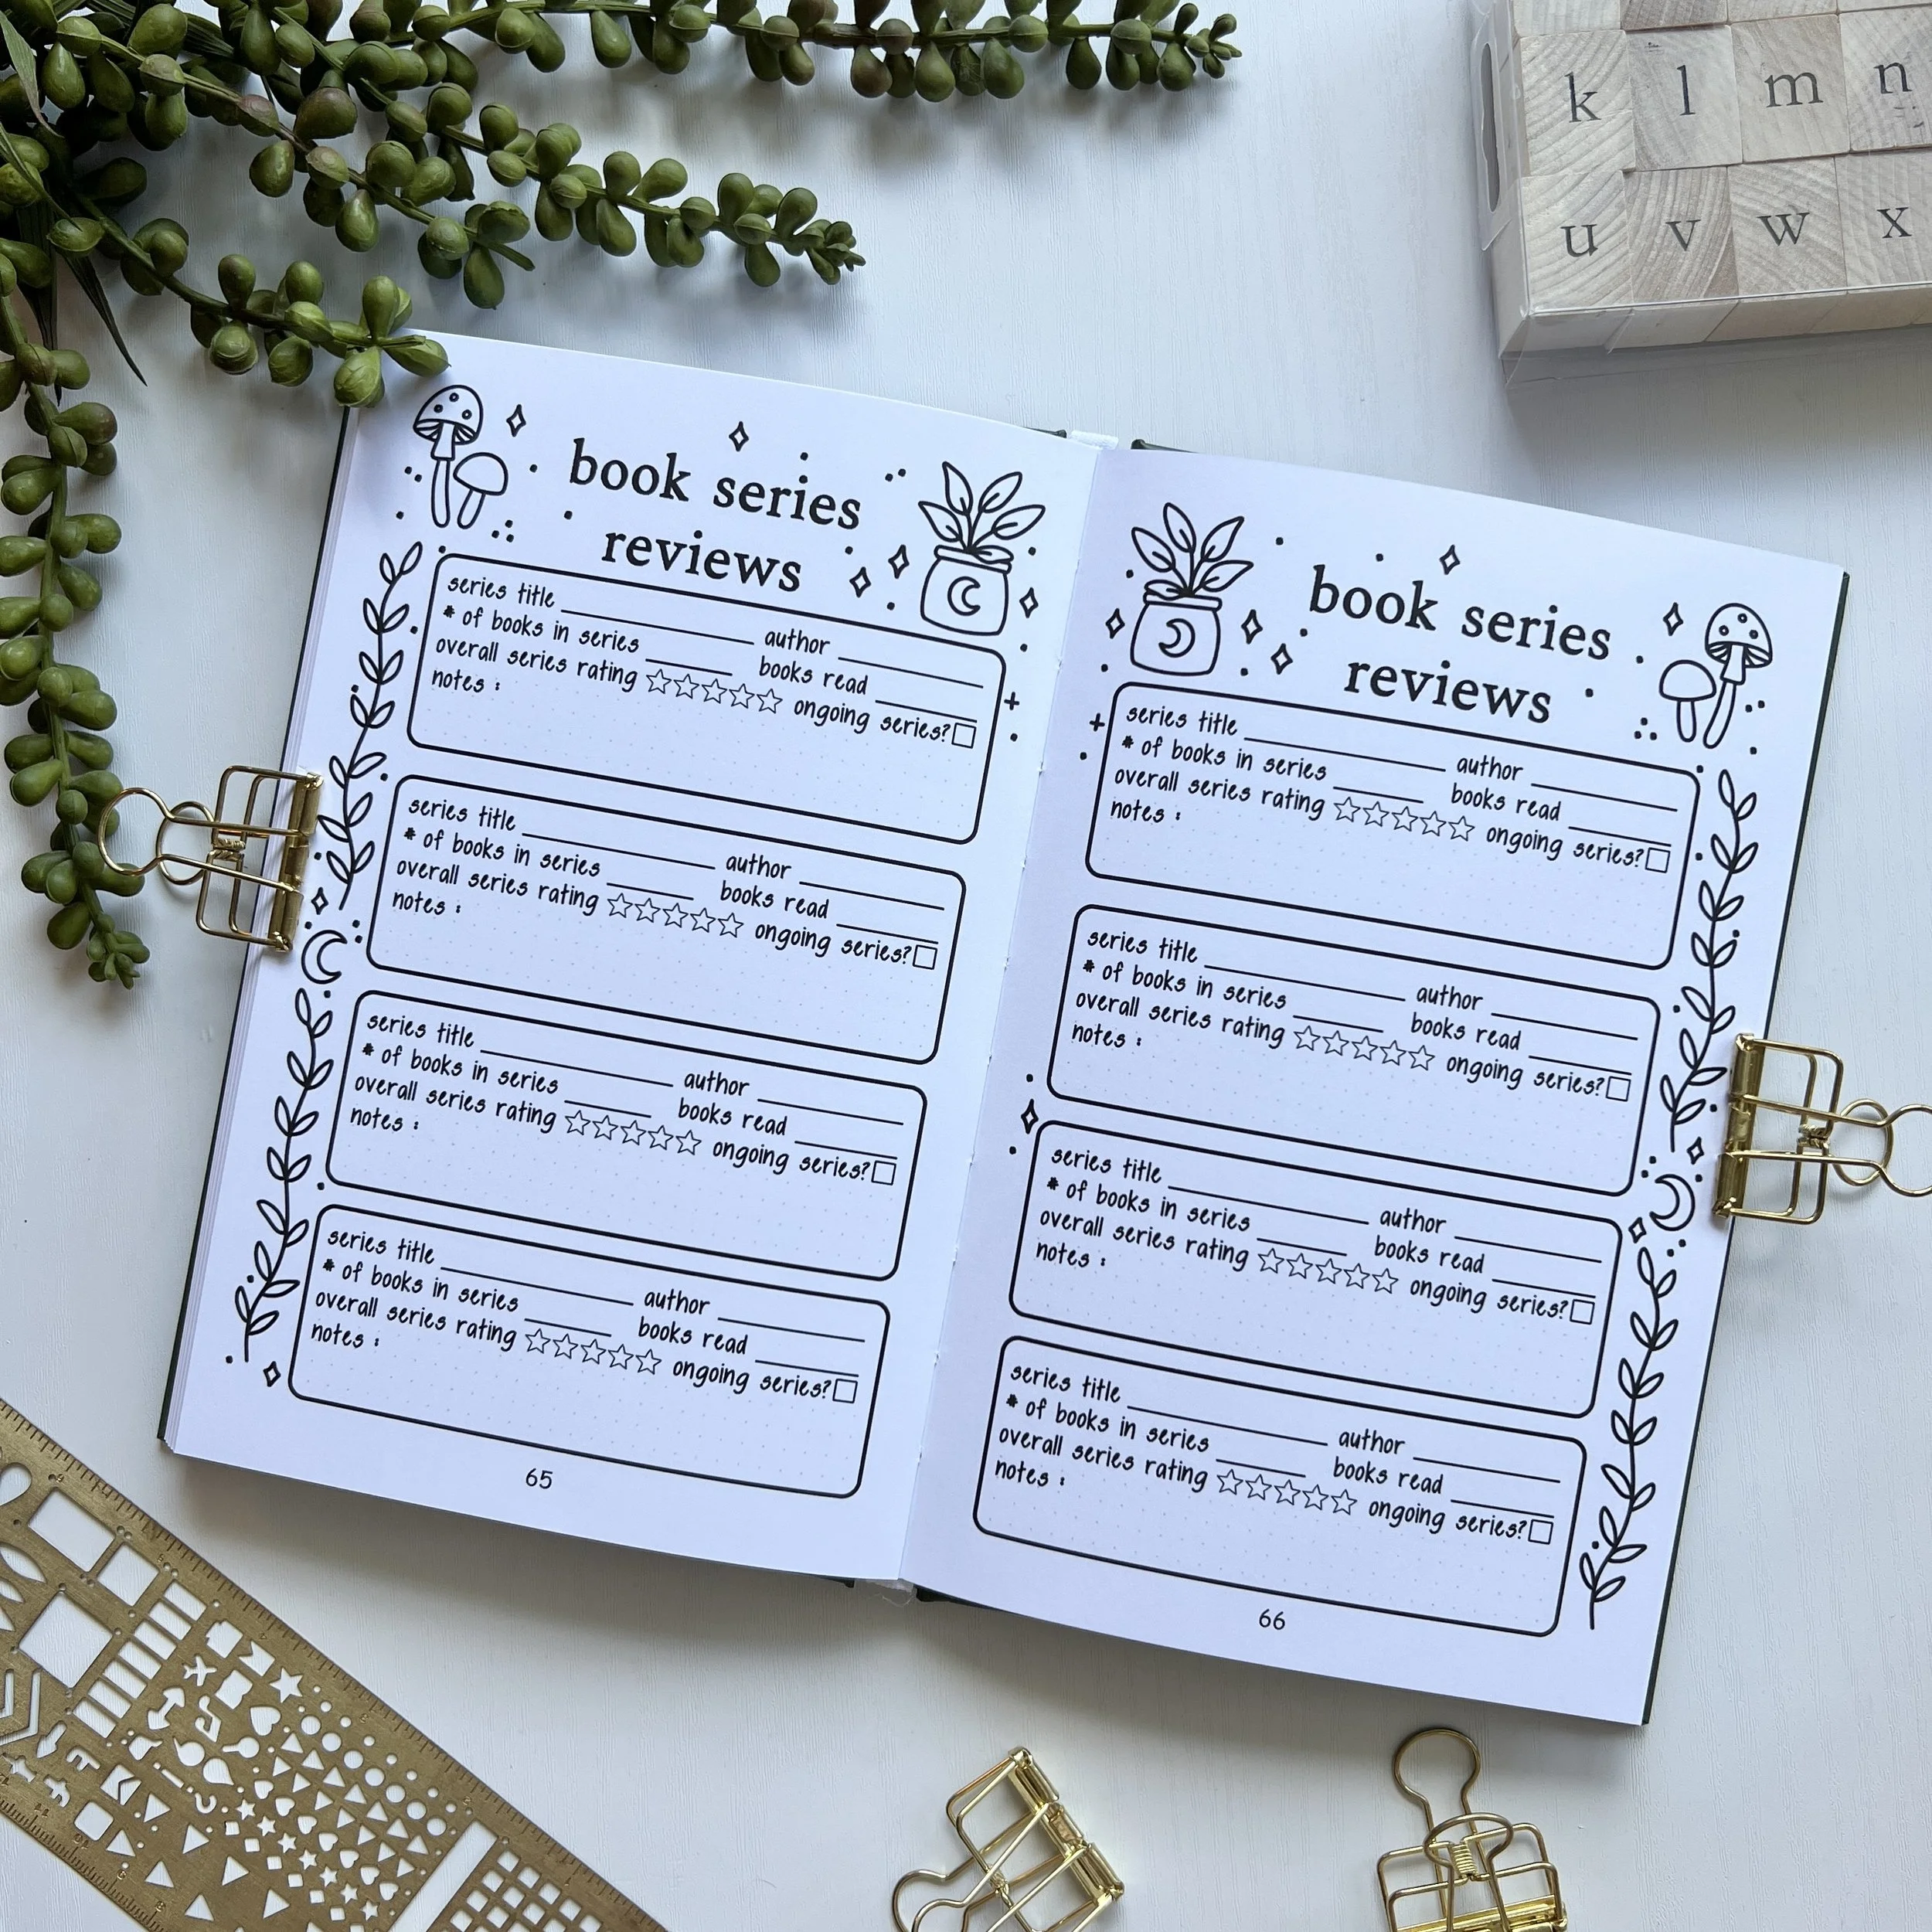 k l m n
u v w x
book series
reviews
series title ____ author ____
# of books in series ____ books read ____
overall series rating ☆☆☆☆☆ ongoing series? □
notes :
series title ____ author ____
# of books in series ____ books read ____
overall series rating ☆☆☆☆☆ ongoing series? □
notes :
series title ____ author ____
# of books in series ____ books read ____
overall series rating ☆☆☆☆☆ ongoing series? □
notes :
series title ____ author ____
# of books in series ____ books read ____
overall series rating ☆☆☆☆☆ ongoing series? □
notes :
65
book series
reviews
series title ____ author ____
# of books in series ____ books read ____
overall series rating ☆☆☆☆☆ ongoing series? □
notes :
series title ____ author ____
# of books in series ____ books read ____
overall series rating ☆☆☆☆☆ ongoing series? □
notes :
series title ____ author ____
# of books in series ____ books read ____
overall series rating ☆☆☆☆☆ ongoing series? □
notes :
series title ____ author ____
# of books in series ____ books read ____
overall series rating ☆☆☆☆☆ ongoing series? □
notes :
66